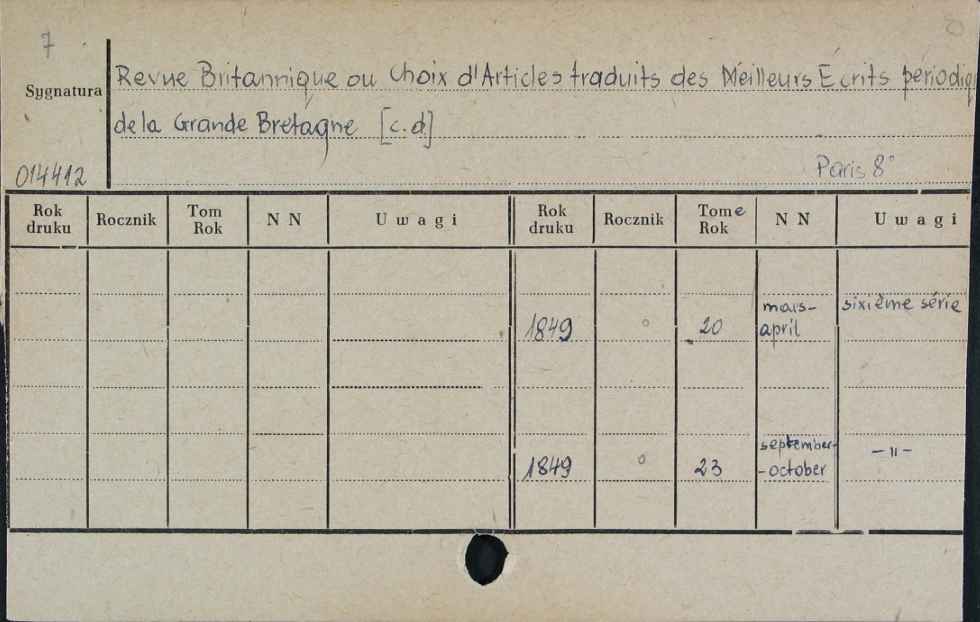 7
Sygnatura
Revue Britannique ou Choix d'Articles traduits des Meilleurs Ecrits périodiq
de la Grande Bretagne [c.d]
014412
Paris 8°
Rok druku Rocznik Tom Rok N N Uwagi Rok druku Rocznik Tome Rok N N Uwagi
1849 o 20 mars-april sixième série
1849 o 23 september-october -"-